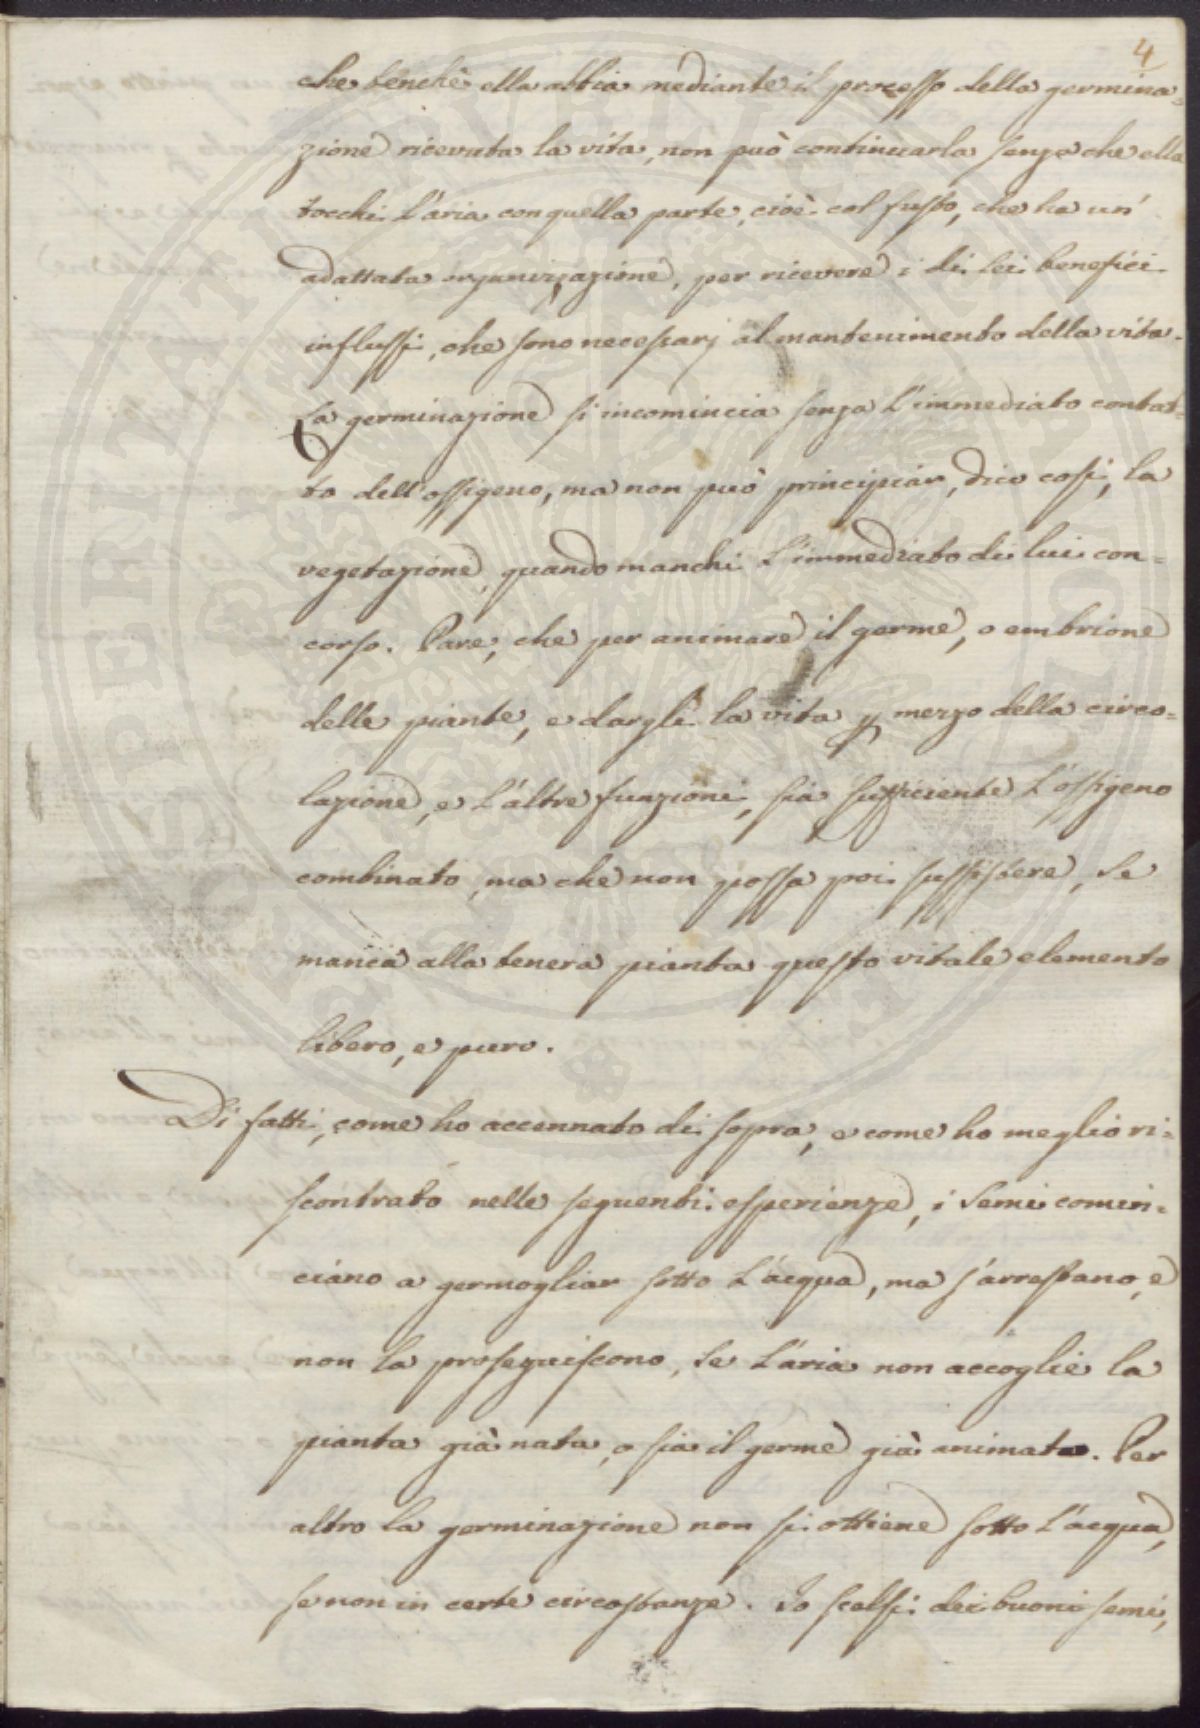 4
che benchè ella abbia mediante il processo della germina=
zione ricevuta la vita, non può continuarla senza che ella
tocchi l'aria con quella parte, cioè col fusto, che ha un'
adattata organizzazione, per ricevere i di lei benefici
influssi, che sono necessarj al mantenimento della vita.
La germinazione si incomincia senza l'immediato contat=
to dell'ossigeno, ma non può principiar, dico così, la
vegetazione, quando manchi l'immediato di lui con=
corso. Pare, che per animare il germe, o embrione
delle piante, e dargli la vita p mezzo della circo=
lazione, e l'altre funzioni, sia sufficiente l'ossigeno
combinato, ma che non possa poi sussistere, se
manca alla tenera pianta questo vitale elemento
libero, e puro.
Di fatti, come ho accennato di sopra, e come ho meglio ri=
scontrato nelle seguenti esperienze, i semi comin=
ciano a germogliar sotto l'acqua, ma s'arrestano, e
non la proseguiscono, se l'aria non accoglie la
pianta già nata, o sia il germe già animato. Per
altro la germinazione non si ottiene sotto l'acqua,
se non in certe circostanze. Io scelsi dei buoni semi,